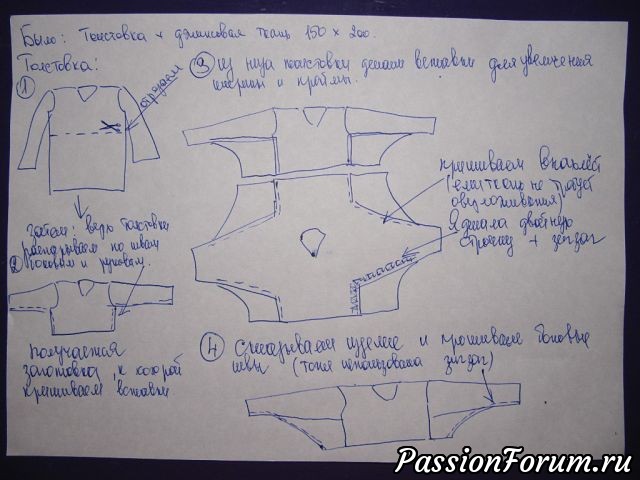 Было: Толстовка + джинсовая ткань 150 × 200.
Толстовка:
1
отрезаем
Затем: верх толстовки
распарываем по швам
2 боковым и рукавам.
Получается
заготовка, к которой
пришиваем вставки
3 из низа толстовки делаем вставки для увеличения
ширины и проймы.
пришиваем внахлёст
(если ткань не требует
оверложивания)
Я делала двойную
строчку + зигзаг
4 Складываем изделие и прошиваем боковые
швы (тоже использовала зигзаг)
PassionForum.ru